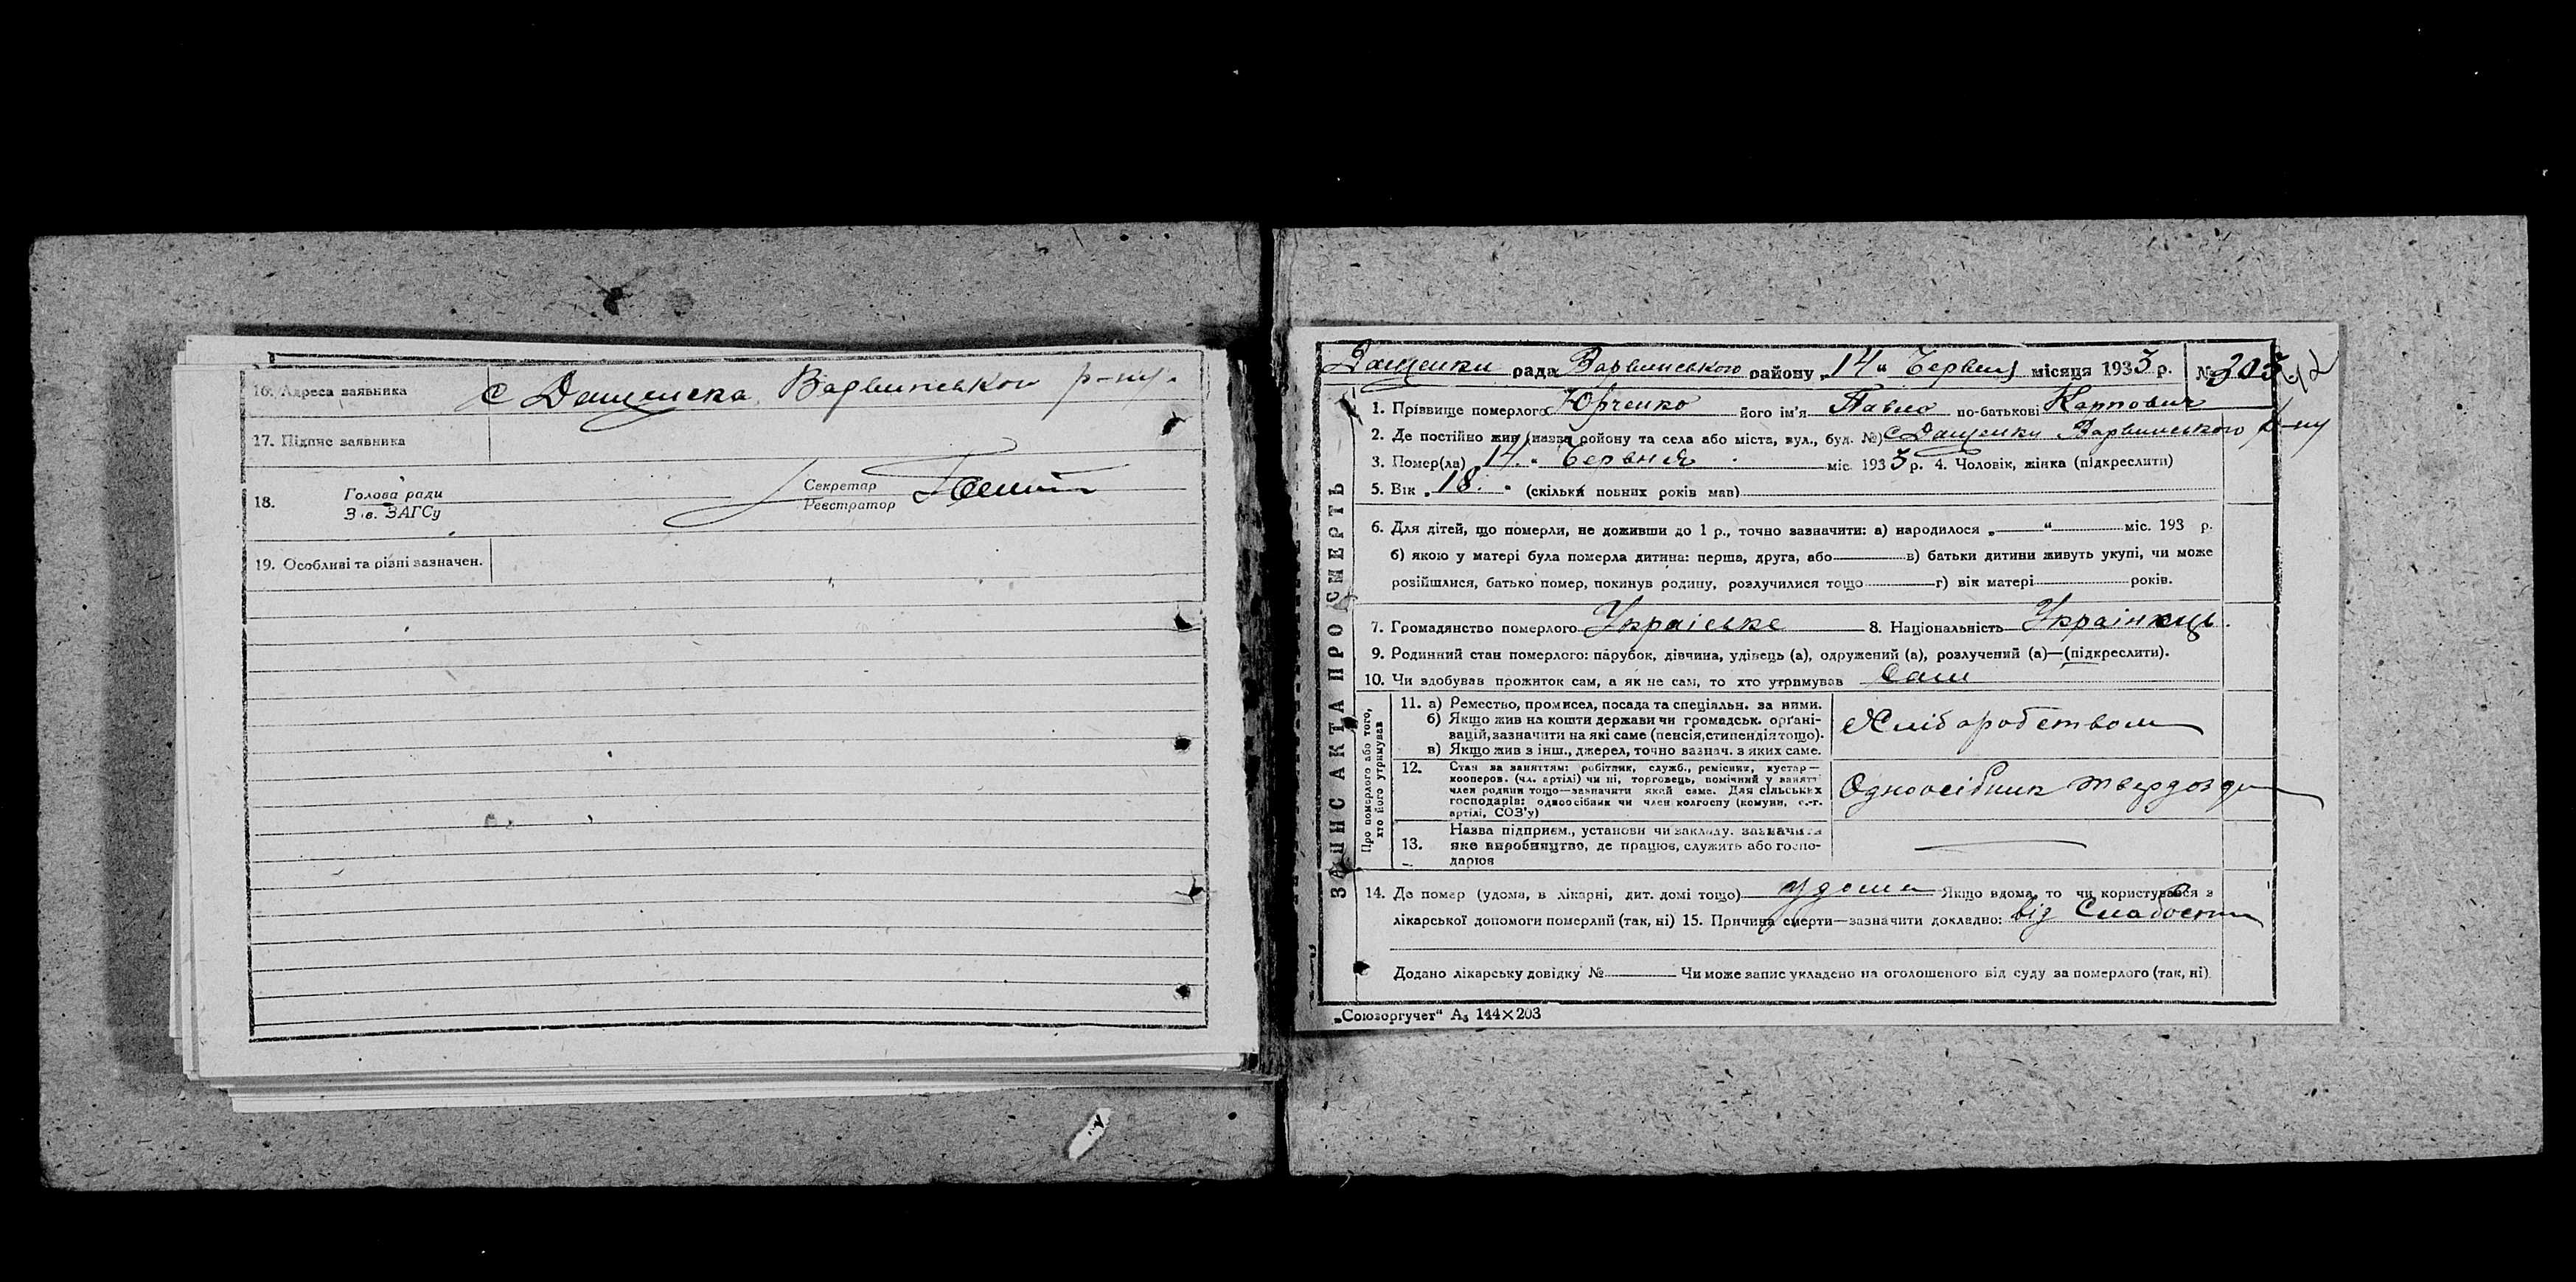 16. Адреса заявника с Дащенка Варвинського р-ну.
17. Підпис заявника
18. Голова ради
Зав. ЗАГСу
Секретар
Реєстратор
19. Особливі та різні зазначен.
ЗАПИС АКТА ПРО СМЕРТЬ
Дащенки рада Варвинського району „14“ Червня місяця 1933 р. №303
1. Прізвище померлого Юрченко його ім'я Павло по-батькові Карпович
2. Де постійно жив (назва району та села або міста, вул., буд. №) с Дащенки Варвинського р-ну
3. Помер(ла) „14“ Червня міс. 1933 р. 4. Чоловік, жінка (підкреслити)
5. Вік „18“ (скільки повних років мав)
6. Для дітей, що померли, не доживши до 1 р., точно зазначити: а) народилося „ “ міс. 193 р.
б) якою у матері була померла дитина: перша, друга, або в) батьки дитини живуть укупі, чи може
розійшлися, батько помер, покинув родину, розлучилися тощо г) вік матері років.
7. Громадянство померлого Украіське 8. Національність Украінець.
9. Родинний стан померлого: парубок, дівчина, удівець (а), одружений (а), розлучений (а)—(підкреслити).
10. Чи здобував прожиток сам, а як не сам, то хто утримував Сам
Про померлого або того,
хто його утримував
11. а) Ремество, промисел, посада та спеціяльн. за ними.
б) Якщо жив на кошти держави чи громадськ. орґані-
зацій, зазначити на які саме (пенсія, стипендія тощо).
в) Якщо жив з інш., джерел, точно зазнач. з яких саме.
Хліборобством
12. Стан за заняттям: робітник, служб., ремісник, кустар—
кооперов. (чл. артілі) чи ні, торговець, помічний у занятт
член родини тощо—зазначити який саме. Для сільських
господарів: одноосібник чи член колгоспу (комуни, с.-г.
артілі, СОЗ'у)
Одноосібник твердозда
13. Назва підприєм., установи чи закладу. зазначити
яке виробництво, де працює, служить або госпо-
дарює
14. Де помер (удома, в лікарні, дит. домі тощо) удома Якщо вдома, то чи користувався з
лікарської допомоги померлий (так, ні) 15. Причина смерти—зазначити докладно: від Слабости
Додано лікарську довідку № Чи може запис укладено на оголошеного від суду за померлого (так, ні)
„Союзоргучет“ А₃ 144×203